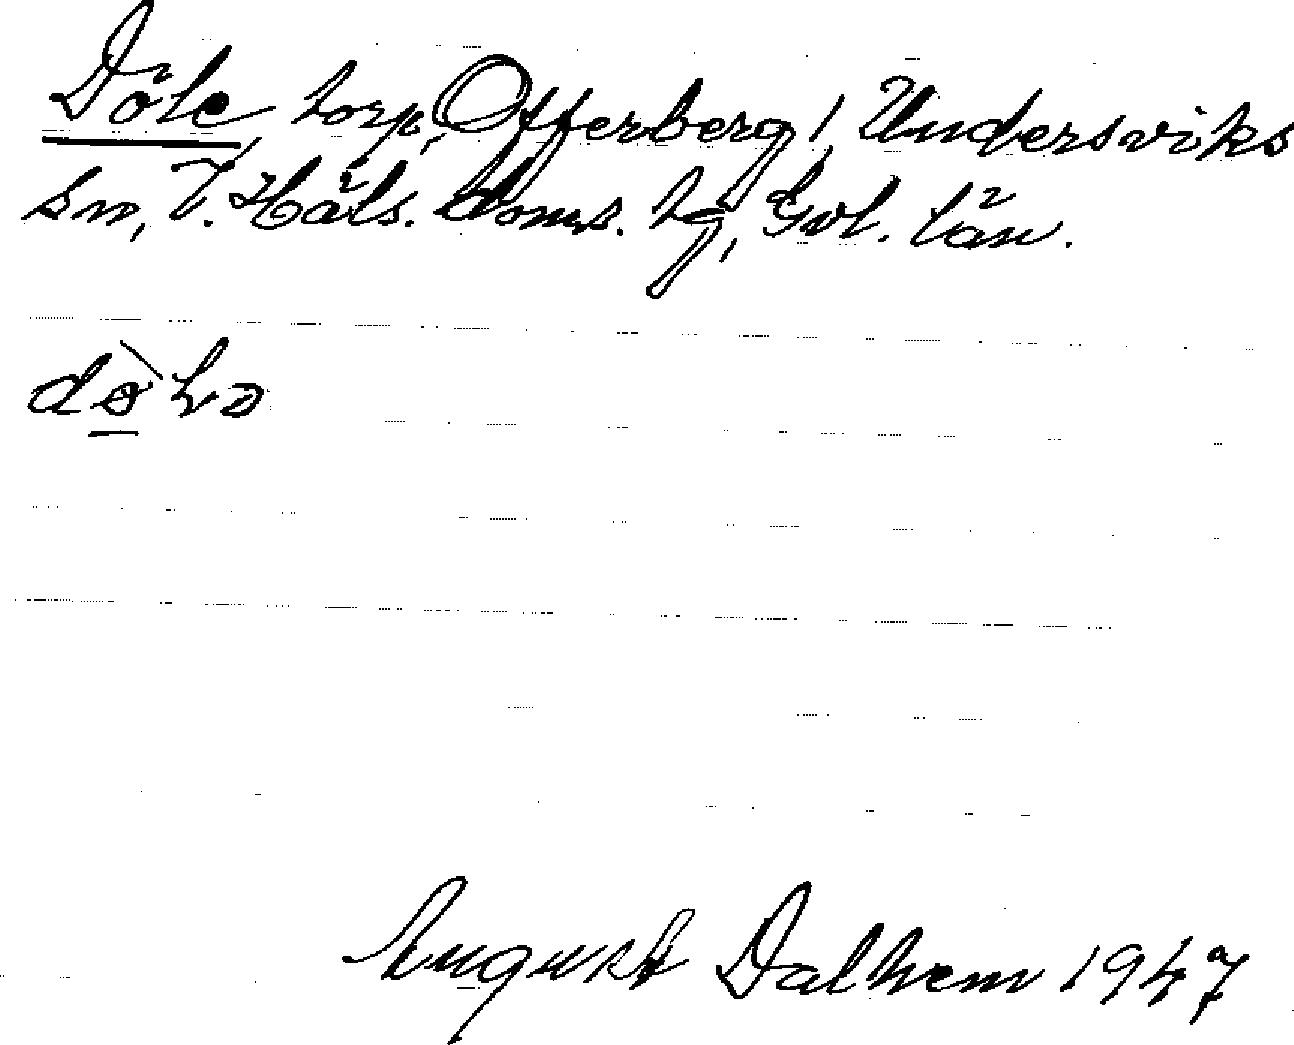 Döle, torp, Offerberg, Undersviks
sn, V. Häls. doms. hg, Gvl. län.
August Dalhem 1947